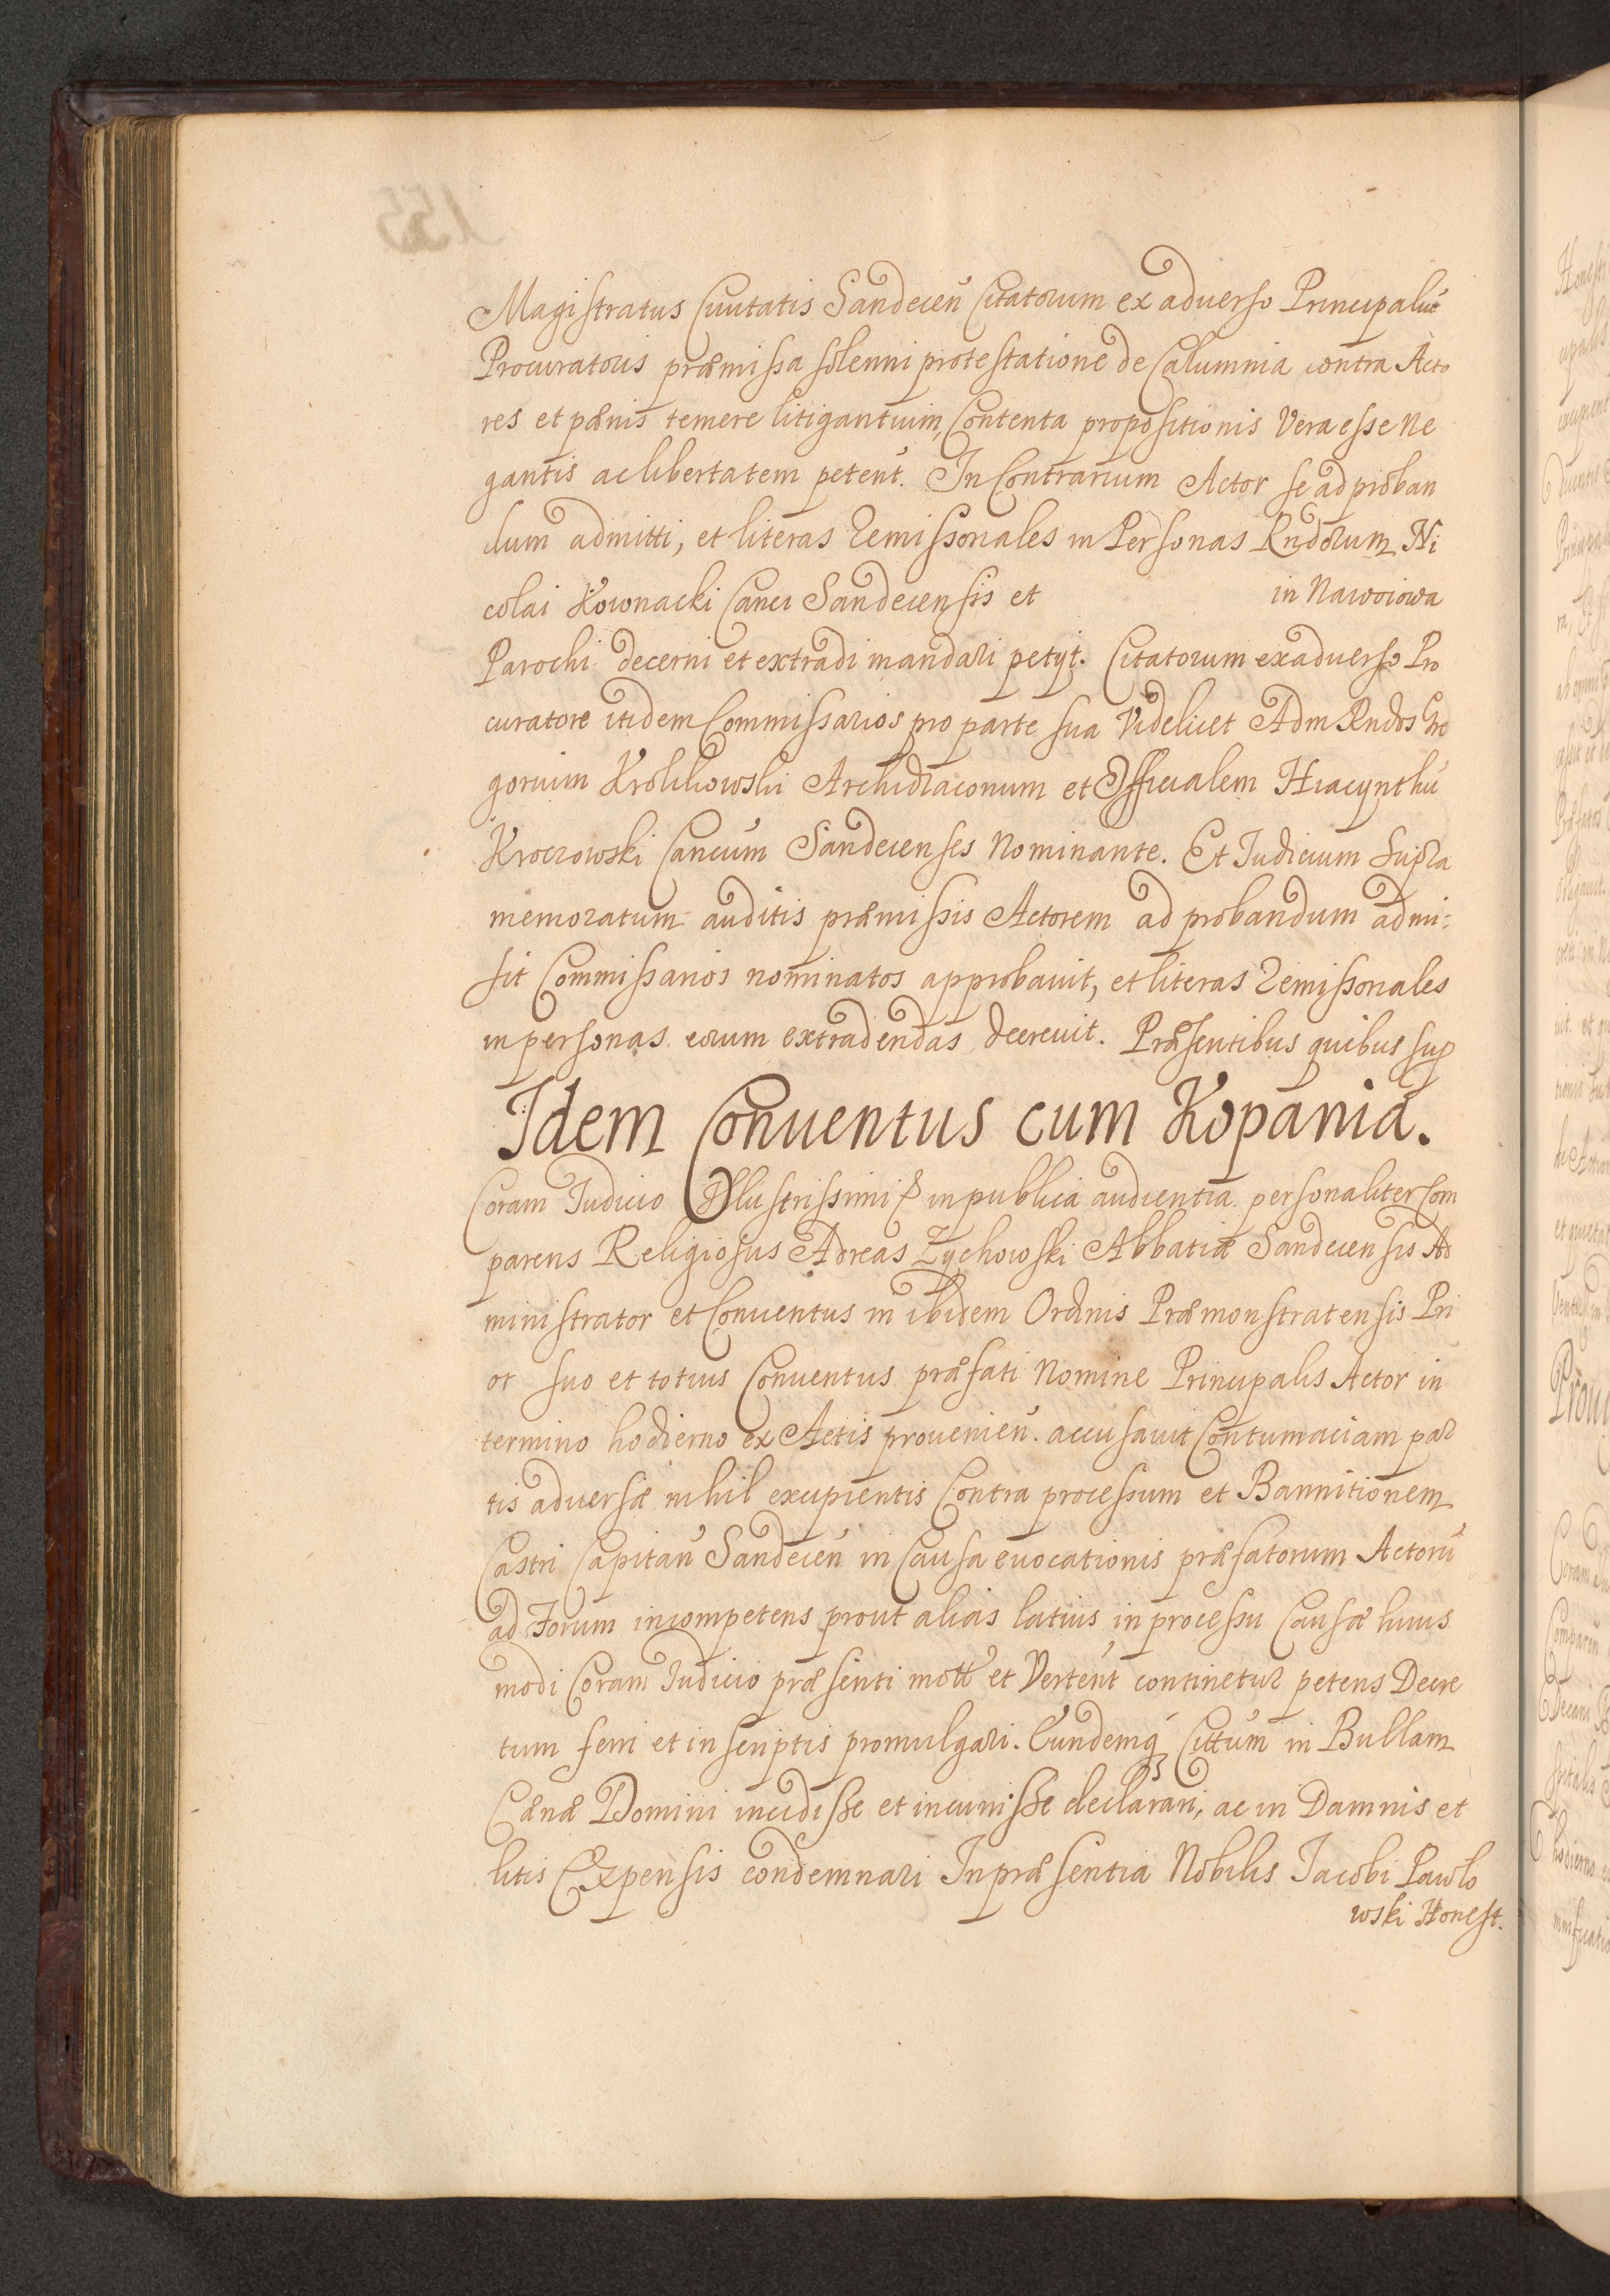 Magistratus Ciuitatis Sandecen̄ Citatorum ex aduerso Principaliū
Procuratoris præmissa solenni protestatione de Calumnia contra Acto
res et pænis temere litigantium, Contenta propositionis Vera esse Ne
gantis ac libertatem peten̄t. In Contrarium Actor se ad proban
dum admitti, et literas Remissionales in Personas Rndorum Ni
colai Kownacki Canci Sandecensis et in Nawoiowa
Parochi decerni et extradi mandari petijt. Citatorum ex aduerso Pro
curatore itidem Commissarios pro parte sua Videlicet Adm Rndos Gre
gorium Krolikowski Archidiaconum et Officialem Hiacynthū
Kroczowski Cancum Sandecenses Nominante. Et Iudicium supra
memoratum auditis præmissis Actorem ad probandum admi:
sit Commissarios nominatos approbauit, et literas Remissionales
in personas eorum extradendas decreuit. Præsentibus quibus sup
Idem Conuentus cum Kopania.
Coram Iudicio Illustrissimi & in publica audientia personaliter Com
parens Religiosus Adreas Zychowski Abbatiæ Sandecensis Ad
ministrator et Conuentus in ibidem Ordinis Præmonstratensis Pri
or suo et totius Conuentus præfati Nomine Principalis Actor in
termino hodierno ex Actis prouenien̄. accusauit Contumaciam par
tis aduersæ nihil excipientis Contra processum et Bannitionem
Castri Capitan̄ Sandecen̄ in Causa euocationis præfatorum Actorū
ad Forum incompetens prout alias latius in processu Causæ huius
modi Coram Iudicio præsenti mott et Verten̄t continetur petens Decre
tum ferri et in scriptis promulgari. Eundemq́ Cittum in Bullam
Cænæ Domini incidisse et incurrisse declarari, ac in Damnis et
litis Expensis condemnari In præsentia Nobilis Iacobi Pawlo
wski Honest.